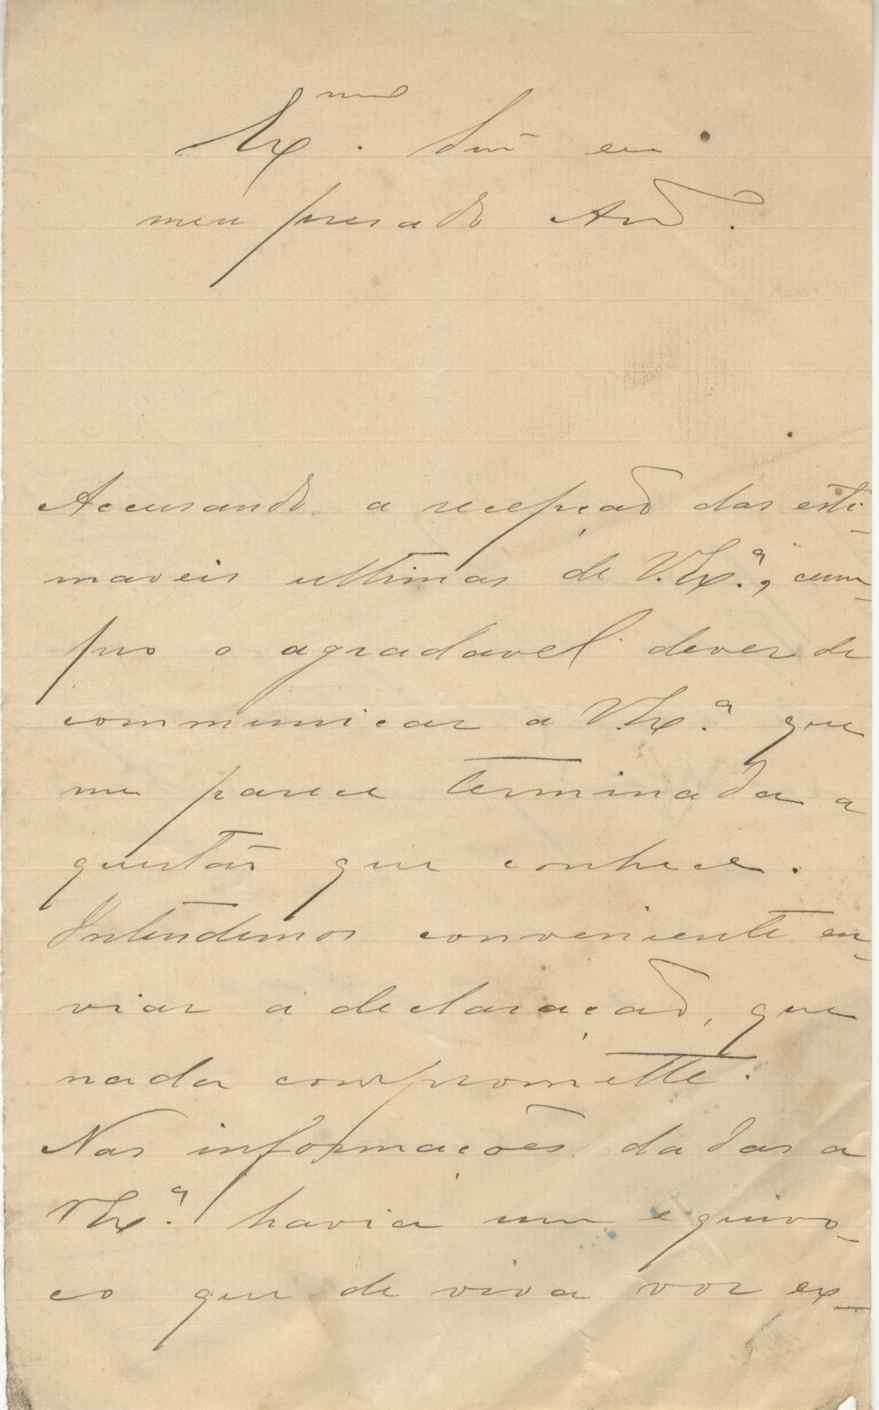 Ex.mo Snr e
meu presado Am.o
Accusando a recepção das esti-
maveis ultimas de V. Ex.ª, cum-
pro o agradavel dever de
communicar a V. Ex.ª que
me parece terminada a
questão que conhece.
Intendemos conveniente en-
viar a declaração, que
nada compromette.
Nas informações dadas a
V Ex.ª havia um equivo-
co que de viva voz ex-